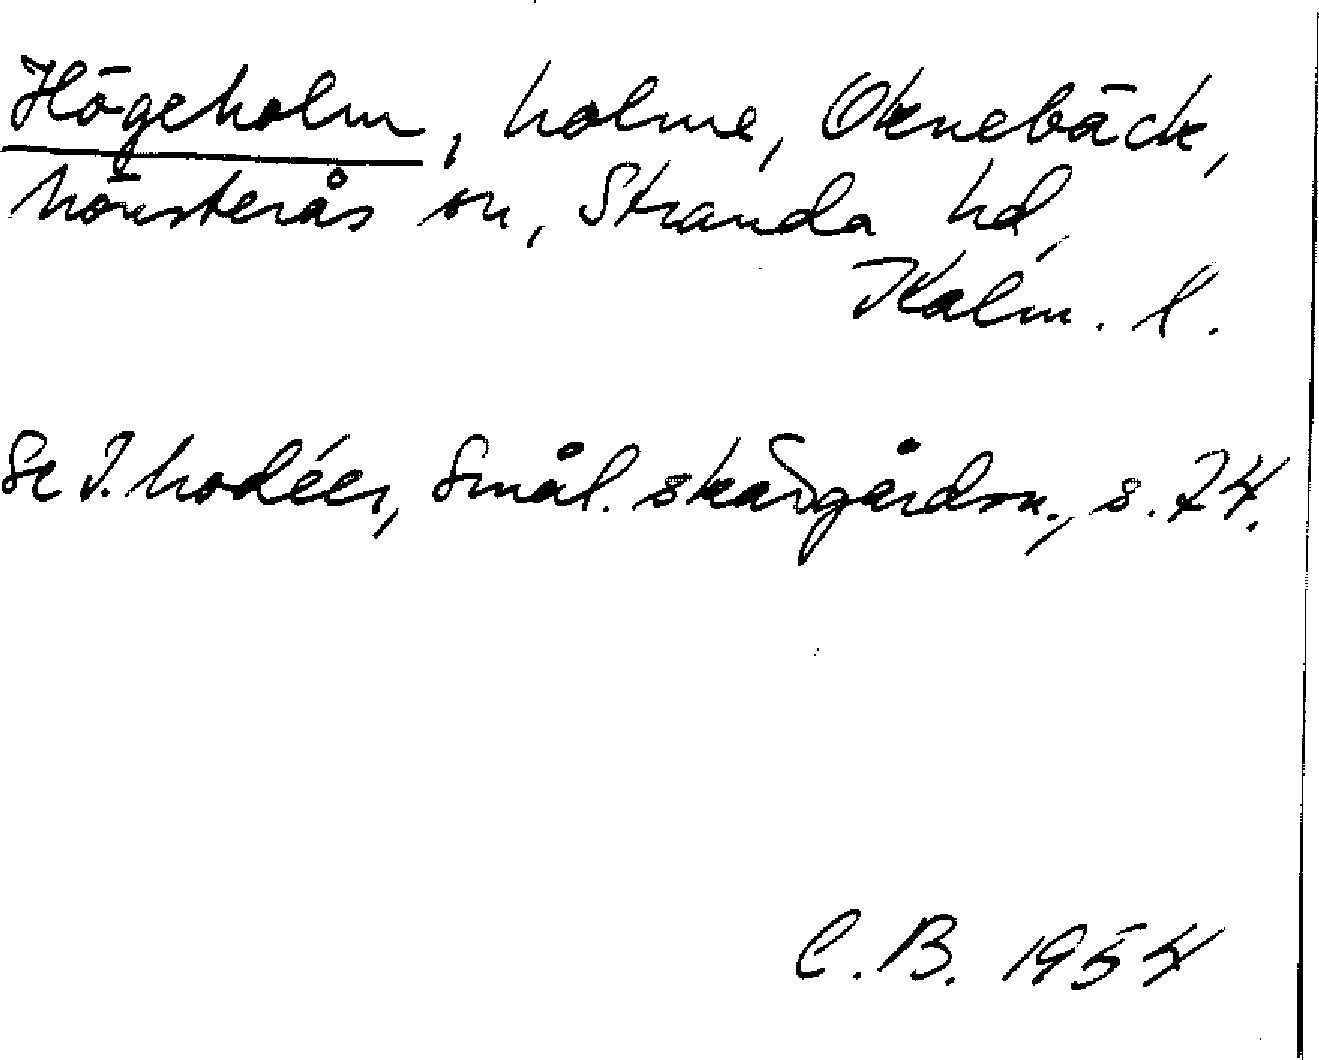 Högeholm, holme, Oknebäck,
Mönsterås sn, Stranda hd,
Kalm. l.
Se I. Modéer, Smål. skärgårdsn., s. 74.
C. B. 1954